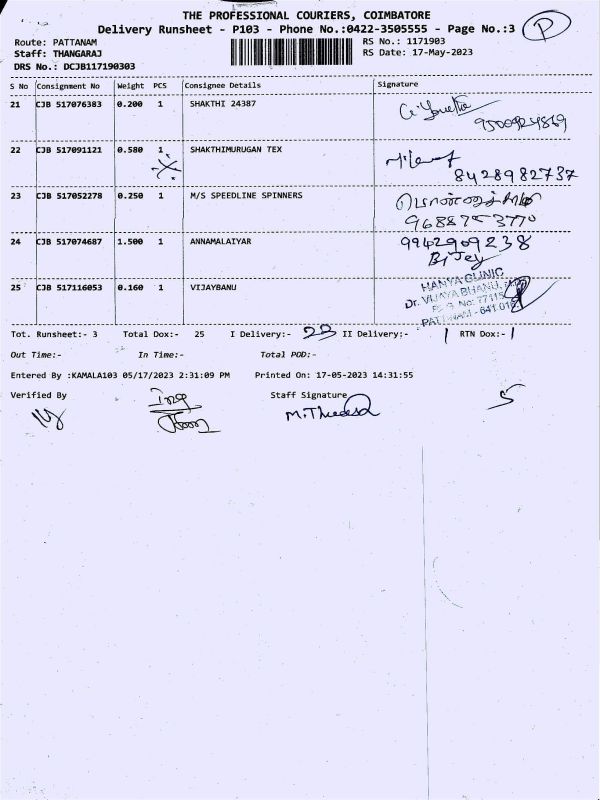 THE PROFESSIONAL COURIERS, COIMBATORE
Delivery Runsheet - P103 - Phone No.:0422-3505555 - Page No.:3 P
Route: PATTANAM RS No.: 1171903
Staff: THANGARAJ RS Date: 17-May-2023
DRS No.: DCJB117190303
S No Consignment No Weight PCS Consignee Details Signature
21 CJB 517076383 0.200 1 SHAKTHI 24387
22 CJB 517091121 0.580 1 SHAKTHIMURUGAN TEX
8428982737
23 CJB 517052278 0.250 1 M/S SPEEDLINE SPINNERS
24 CJB 517074687 1.500 1 ANNAMALAIYAR 9942909238
25 CJB 517116053 0.160 1 VIJAYBANU HANYA CLINIC
Dr. VIJAYA BHANU,
No: 77115
641 016
Tot. Runsheet:- 3 Total Dox:- 25 I Delivery:- 23 II Delivery:- 1 RTN Dox:- 1
Out Time:- In Time:- Total POD:-
Entered By :KAMALA103 05/17/2023 2:31:09 PM Printed On: 17-05-2023 14:31:55
Verified By Staff Signature